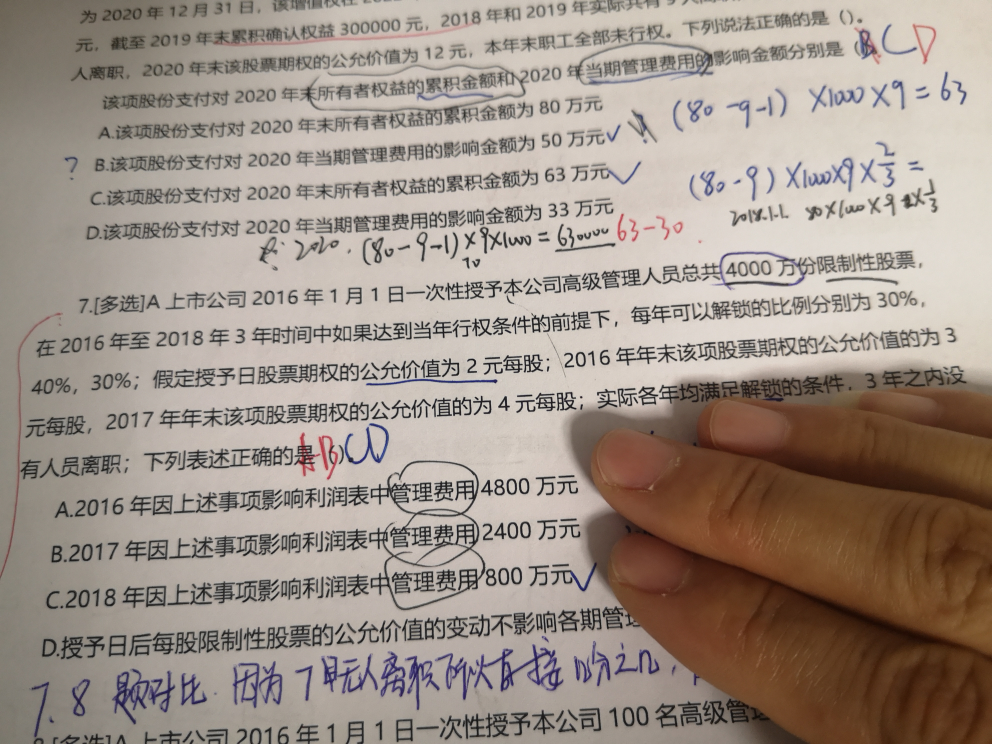 为 2020 年 12 月 31 日，该增值权在
元，截至 2019 年末累积确认权益 300000 元，2018 年和 2019 年实际共有 9 人
人离职，2020 年末该股票期权的公允价值为 12 元，本年末职工全部未行权。下列说法正确的是（）。
该项股份支付对 2020 年末所有者权益的累积金额和 2020 年当期管理费用的影响金额分别是（ B CD
A.该项股份支付对 2020 年末所有者权益的累积金额为 80 万元
(80-9-1) ×1000×9=63
? B.该项股份支付对 2020 年当期管理费用的影响金额为 50 万元✓
C.该项股份支付对 2020 年末所有者权益的累积金额为 63 万元✓
(80-9)×1000×9×2/3=
D.该项股份支付对 2020 年当期管理费用的影响金额为 33 万元
2018.1.1. 80×1000×9 ×1/3
2020. (80-9-1)×9×1000=630000 63-30
70
7.[多选]A 上市公司 2016 年 1 月 1 日一次性授予本公司高级管理人员总共 4000 万份限制性股票，
在 2016 年至 2018 年 3 年时间中如果达到当年行权条件的前提下，每年可以解锁的比例分别为 30%，
40%，30%；假定授予日股票期权的公允价值为 2 元每股；2016 年年末该项股票期权的公允价值的为 3
元每股，2017 年年末该项股票期权的公允价值的为 4 元每股；实际各年均满足解锁的条件，3 年之内没
有人员离职；下列表述正确的是（）。 AB CD
A.2016 年因上述事项影响利润表中管理费用 4800 万元
B.2017 年因上述事项影响利润表中管理费用 2400 万元
C.2018 年因上述事项影响利润表中管理费用 800 万元✓
D.授予日后每股限制性股票的公允价值的变动不影响各期管
7.8 题对比. 因为7题无人离职所以直接几分之几，
8.[多选]A 上市公司 2016 年 1 月 1 日一次性授予本公司 100 名高级管